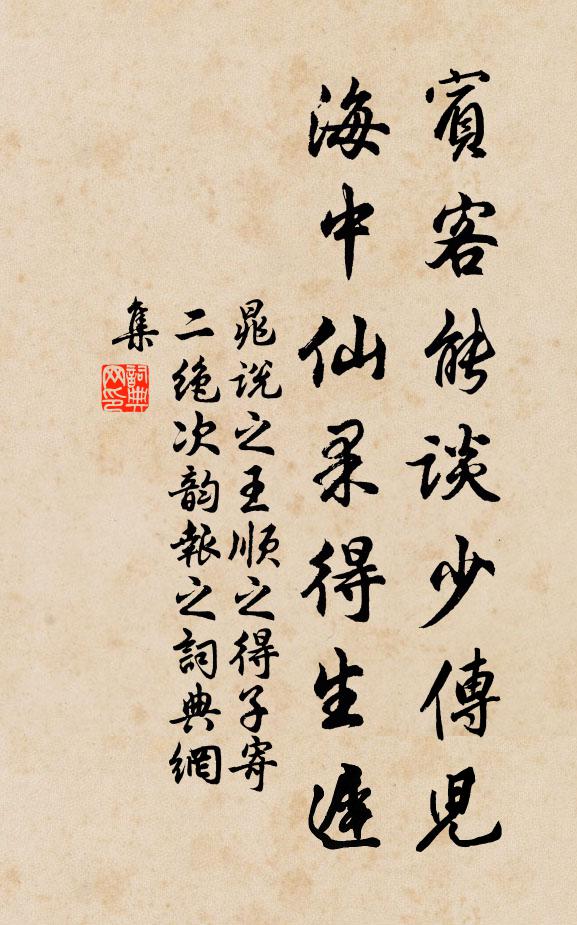 賓客能談少傅兒
海中仙果得生遲
晁説之王順之得子寄
二絕次韵報之詞典網
集
詞典
网印